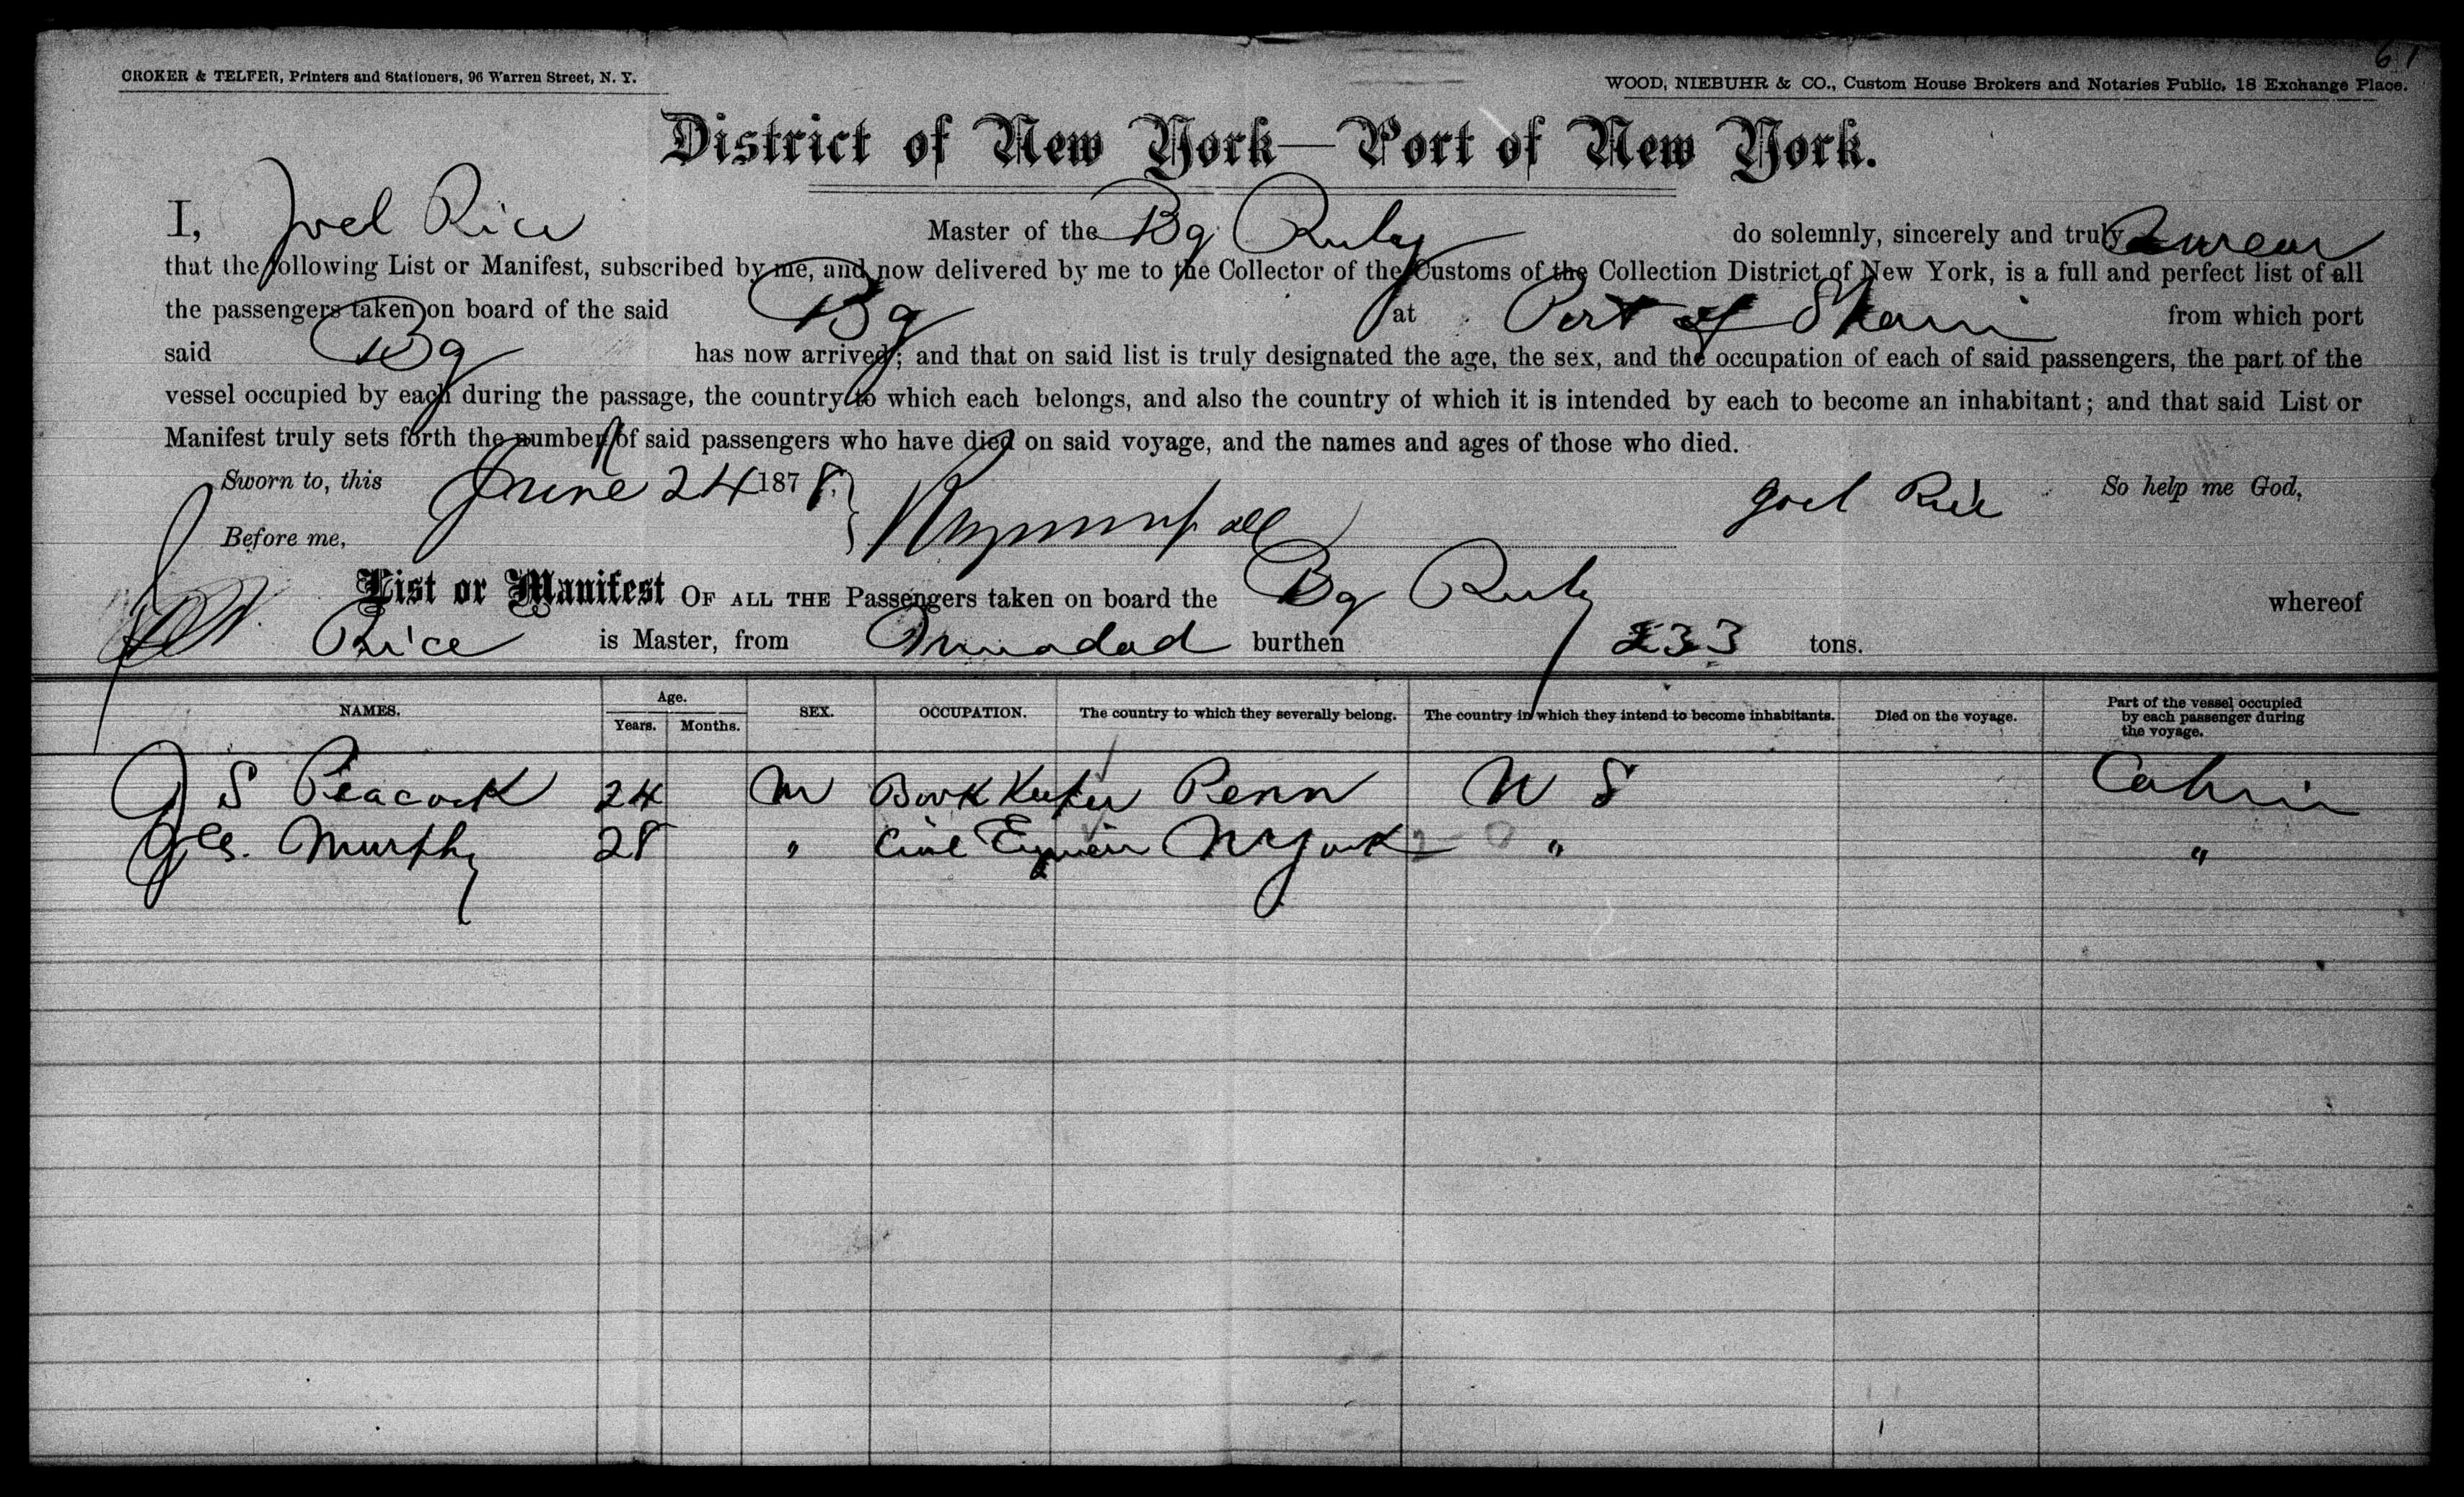 61
CROKER & TELFER, Printers and Stationers, 96 Warren Street, N. Y.
WOOD, NIEBUHR & CO., Custom House Brokers and Notaries Public, 18 Exchange Place.
District of New York—Port of New York.
I, Joel Rice Master of the Bg Ruby do solemnly, sincerely and truly swear
that the following List or Manifest, subscribed by me, and now delivered by me to the Collector of the Customs of the Collection District of New York, is a full and perfect list of all
the passengers taken on board of the said Bg at Port of Spain from which port
said Bg has now arrived; and that on said list is truly designated the age, the sex, and the occupation of each of said passengers, the part of the
vessel occupied by each during the passage, the country to which each belongs, and also the country of which it is intended by each to become an inhabitant; and that said List or
Manifest truly sets forth the number of said passengers who have died on said voyage, and the names and ages of those who died.
Sworn to, this June 24 1878. Joel Rice So help me God,
Before me,
List or Manifest OF ALL THE Passengers taken on board the Bg Ruby whereof
Rice is Master, from Trinadad burthen 233 tons.
NAMES. Age. Years. Months. SEX. OCCUPATION. The country to which they severally belong. The country in which they intend to become inhabitants. Died on the voyage. Part of the vessel occupied by each passenger during the voyage.
J S Peacock 24 M Book Keeper Penn U S Cabin
Murphy 28 " Civil Engineer N York " "